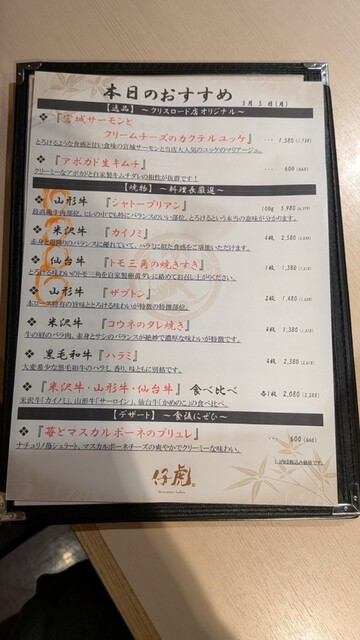 本日のおすすめ 3月3日(月)
【逸品】 ～クリスロード店オリジナル～
❖ 『宮城サーモンと
クリームチーズのカクテルユッケ』 ... 1,580
とろけるような食感と甘い食味の宮城サーモンと当店大人気のユッケのマリアージュ。
❖ 『アボカド生キムチ』 ... 600 (660)
クリーミーなアボカドと自家製キムチダレの相性が抜群です！
【焼物】 ～料理長厳選～
❖ 山形牛 『シャトーブリアン』 100g 5,980
最高級牛肉部位、ヒレの中でも特にバランスのいい部位。とろけるという本当の意味が分かります。
❖ 米沢牛 『カイノミ』 4枚 2,580
赤身と霜降りのバランスに優れていて、ハラミに似た食感をご堪能いただけます。
❖ 仙台牛 『トモ三角の焼きすき』 1枚 1,380
とろける味わいのトモ三角を自家製割下ダレに絡めてお召し上がりください。
❖ 山形牛 『ザブトン』 2枚 1,480
本ロース特有の旨味ととろける味わいが特徴の特撰部位。
❖ 米沢牛 『コウネのタレ焼き』 4枚 1,380
牛の肩のバラ肉。赤身とサシのバランスが絶妙で濃厚な味わいが特徴です。
❖ 黒毛和牛 『ハラミ』 4枚 2,380
大変希少な黒毛和牛のハラミ。香り、味ともに別格です。
❖ 『米沢牛・山形牛・仙台牛』 食べ比べ 各1枚 2,080
米沢牛「カイノミ」、山形牛「サーロイン」、仙台牛「かめのこ」の食べ比べ。
【デザート】 ～食後にぜひ～
❖ 『苺とマスカルポーネのブリュレ』 600 (660)
ナチュリノ苺ジェラート、マスカルポーネチーズの爽やかでクリーミーな味わい。
仔虎